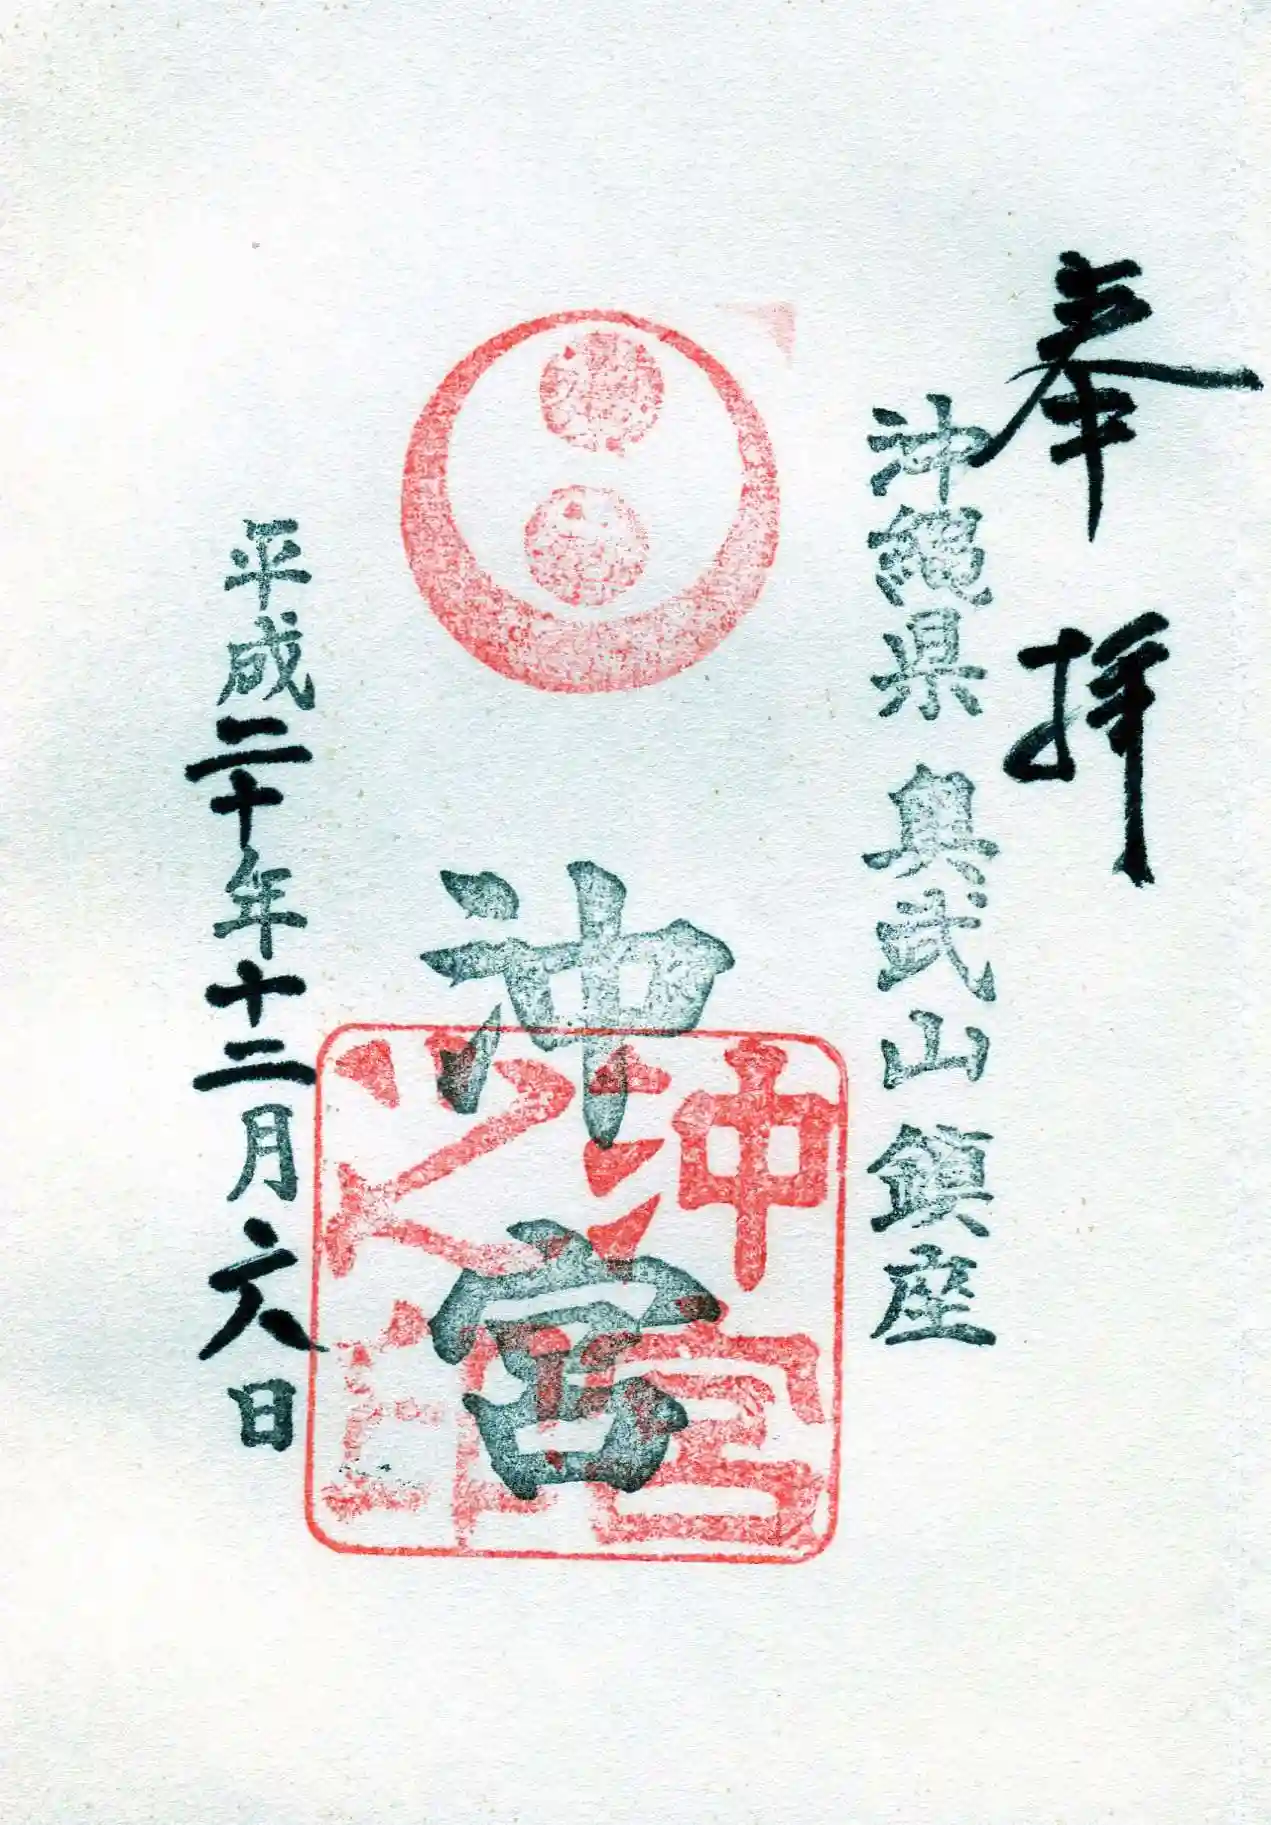 奉拝
沖縄県 奥武山鎮座
沖宮
沖宮
之印
平成二十年十二月六日